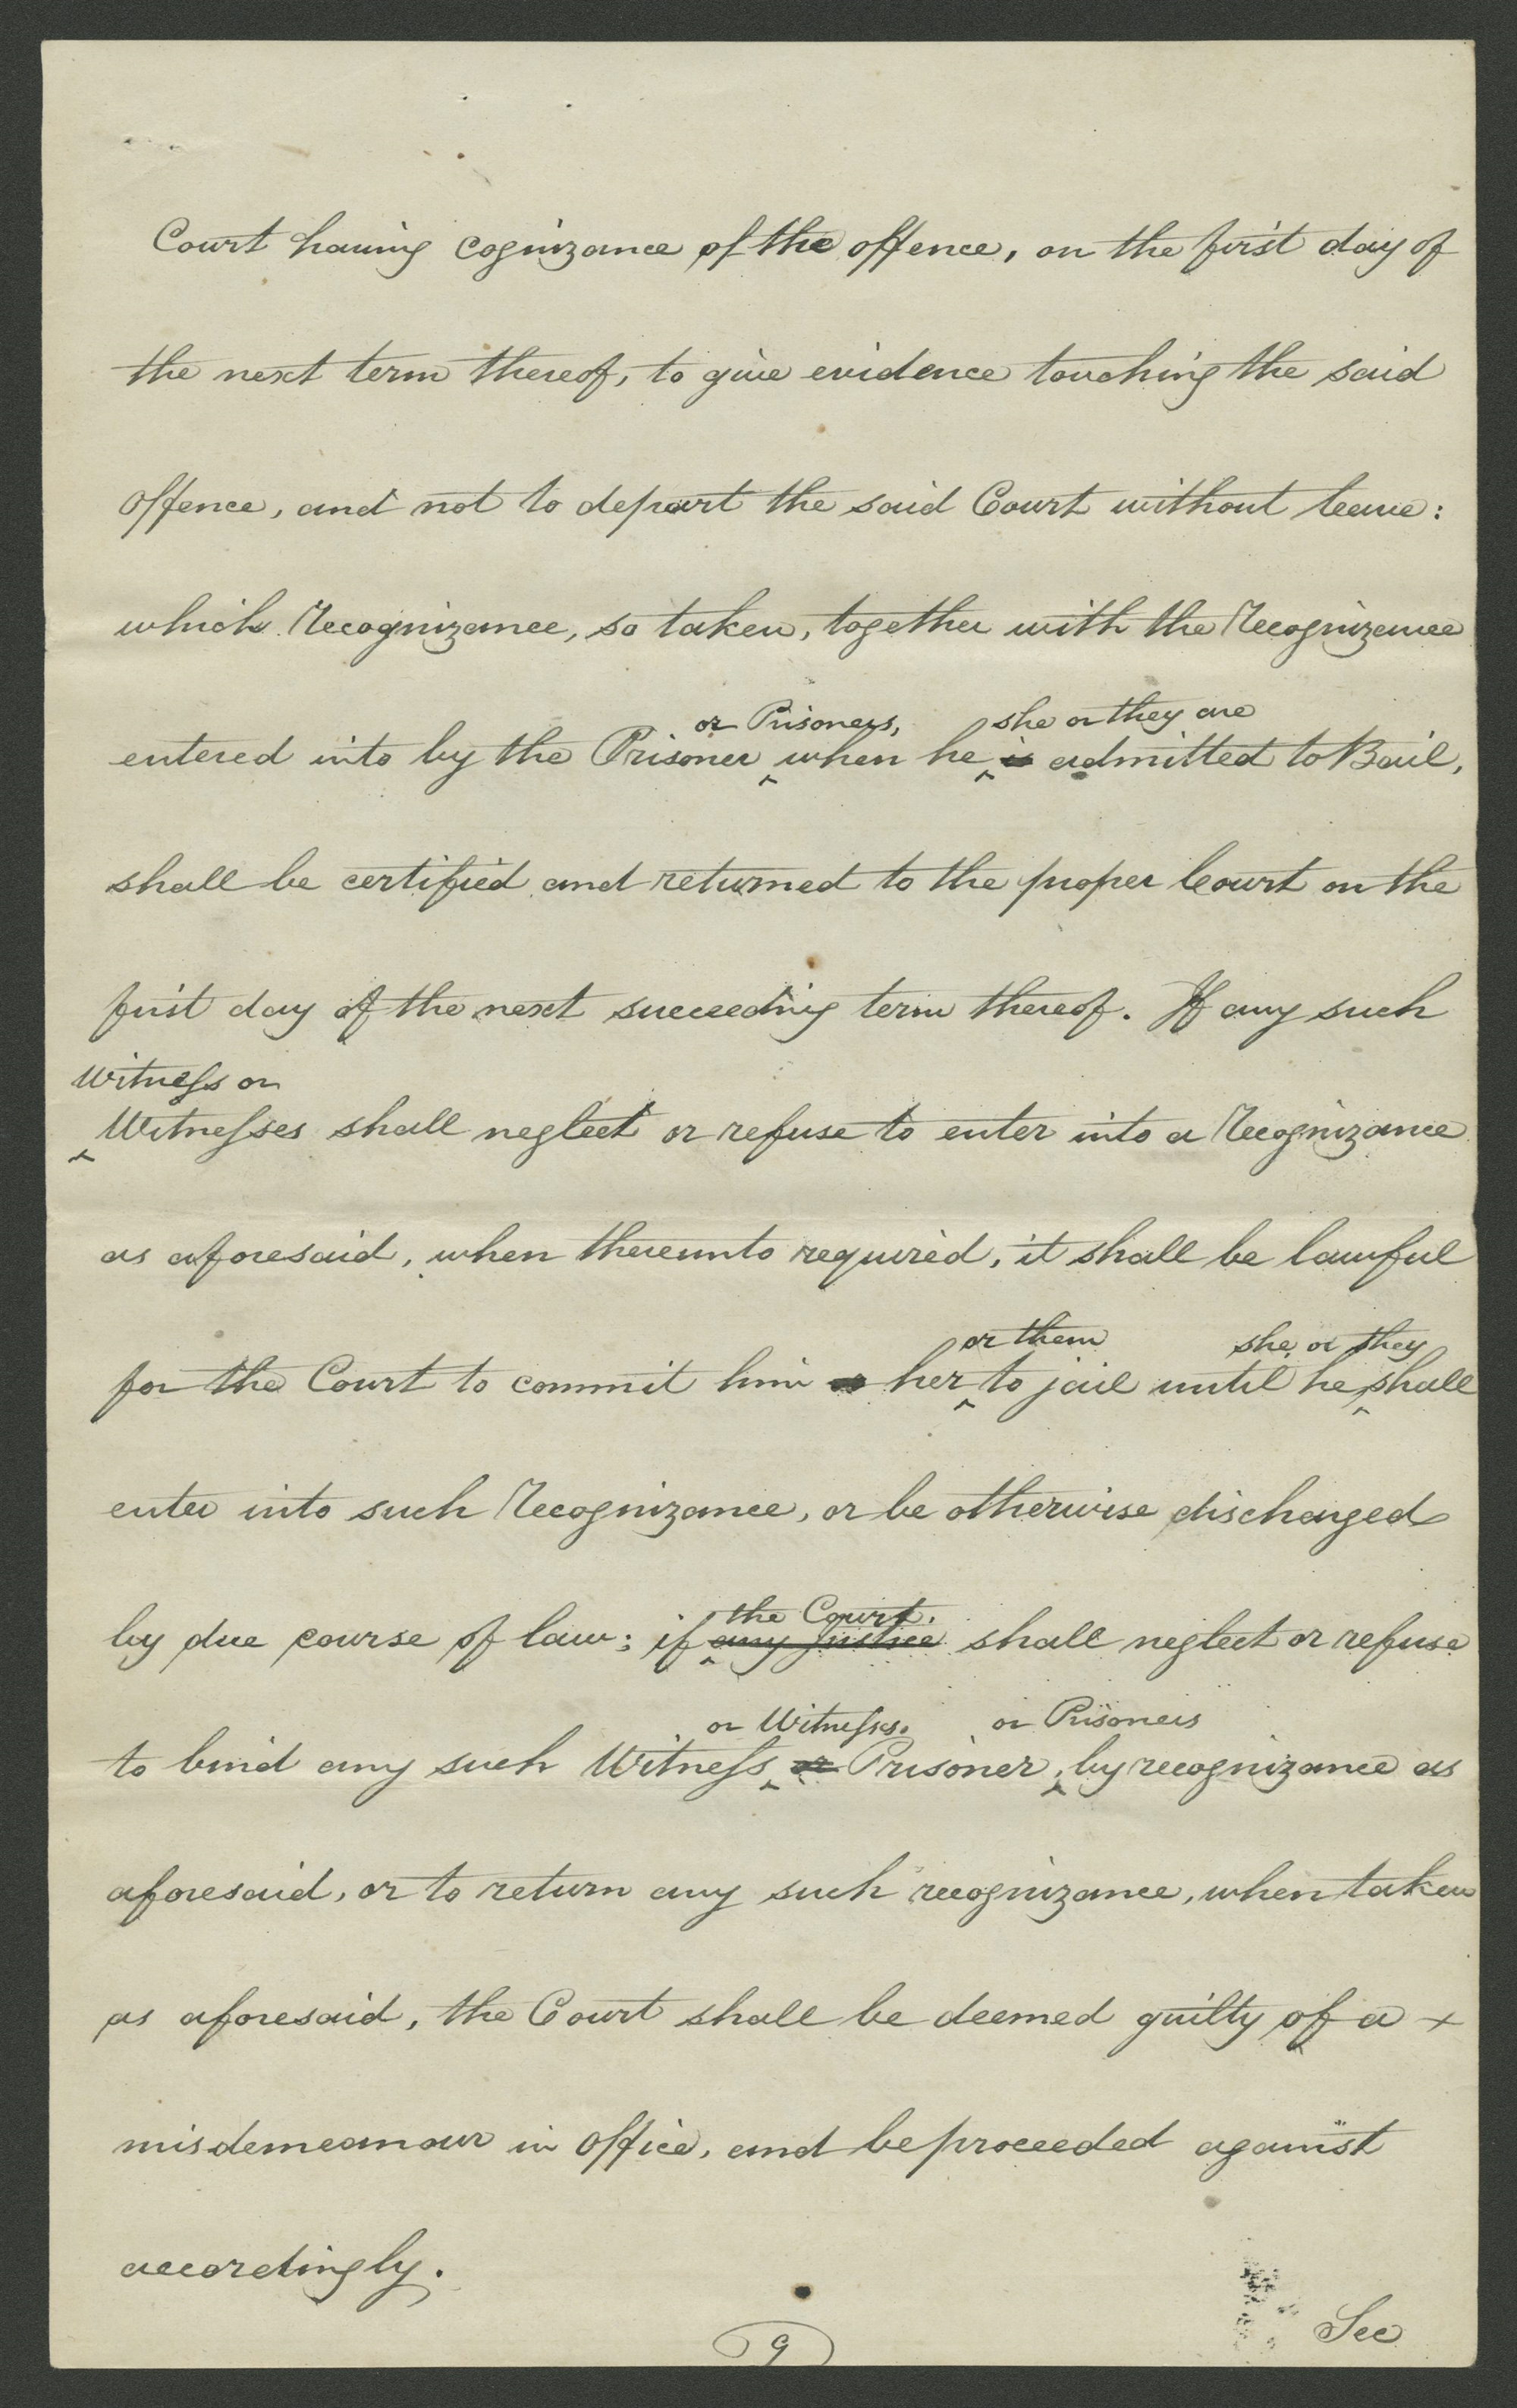 Court having cognizance of the offence, on the first day of
the next term thereof, to give evidence touching the said
offence, and not to depart the said Court without leave:
which Recognizance, so taken, together with the Recognizance
or Prisoners, she or they are
entered into by the Prisoner when he is admitted to Bail,
shall be certified and returned to the proper Court on the
first day of the next succeeding term thereof. If any such
Witness or
Witnesses shall neglect or refuse to enter into a Recognizance
as aforesaid, when thereunto required, it shall be lawful
or them she or they
for the Court to commit him or her to jail until he shall
enter into such Recognizance, or be otherwise discharged
the Court.
by due course of law; if any Justice shall neglect or refuse
or Witnesses. or Prisoners
to bind any such Witness or Prisoner, by recognizance as
aforesaid, or to return any such recognizance, when taken
as aforesaid, the Court shall be deemed guilty of a +
misdemeanour in office, and be proceeded against
accordingly.
9
See